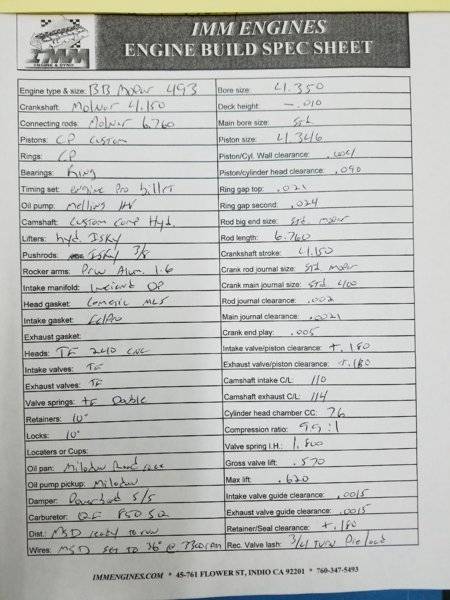 IMM
ENGINE & DYNO
IMM ENGINES
ENGINE BUILD SPEC SHEET
Engine type & size: BB Mopar 493
Crankshaft: Molnar 4.150
Connecting rods: Molnar 6.760
Pistons: CP Custom
Rings: CP
Bearings: King
Timing set: engine Pro billet
Oil pump: Melling HV
Camshaft: Custom Comp Hyd.
Lifters: hyd. Isky
Pushrods: Isky 3/8
Rocker arms: Prw Alum. 1.6
Intake manifold: Indy
Head gasket: Cometic MLS
Intake gasket: FelPro
Exhaust gasket:
Heads: TF 240 CNC
Intake valves: TF
Exhaust valves: TF
Valve springs: TF Dable
Retainers: 10°
Locks: 10°
Locaters or Cups:
Oil pan: Milodon Road race
Oil pump pickup: Milodon
Damper: Powerbond S/S
Carburetor: QF 850 SQ
Dist.: MSD ready to run
Wires: MSD SET TO 36° @ 3300 RPM
Bore size: 4.350
Deck height: -.010
Main bore size: Std
Piston size: 4.346
Piston/Cyl. Wall clearance: .004
Piston/cylinder head clearance: .090
Ring gap top: .021
Ring gap second: .024
Rod big end size: Std. mopar
Rod length: 6.760
Crankshaft stroke: 4.150
Crank rod journal size: STd mopar
Crank main journal size: Std 400
Rod journal clearance: .002
Main journal clearance: .0021
Crank end play: .005
Intake valve/piston clearance: +.180
Exhaust valve/piston clearance: +.180
Camshaft intake C/L: 110
Camshaft exhaust C/L: 114
Cylinder head chamber CC: 76
Compression ratio: 9.9:1
Valve spring I.H.: 1.800
Gross valve lift: .570
Max lift: .620
Intake valve guide clearance: .0015
Exhaust valve guide clearance: .0015
Retainer/Seal clearance: +.180
Rec. Valve lash: 3/4 turn Preload
IMMENGINES.COM * 45-761 FLOWER ST, INDIO CA 92201 * 760-347-5493